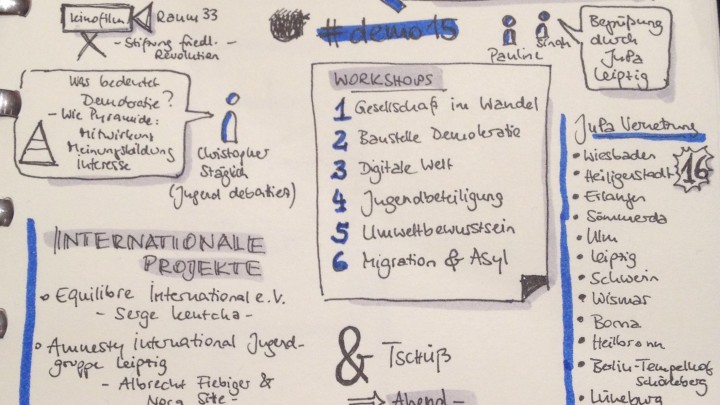 kinofilm
Raum 33
- Stiftung friedl. -
Revolution
#demo15
Pauline
Begrüßung
durch
JuPa
Leipzig
Was bedeutet
Demokratie?
- Wie Pyramide:
Mitwirkung
Meinungsbildung
Interesse
Christopher
(Jugend debattiert)
WORKSHOPS
1 Gesellschaft im Wandel
2 Baustelle Demokratie
3 Digitale Welt
4 Jugendbeteiligung
5 Umweltbewusstsein
6 Migration & Asyl
JuPa Vernetzung
16
• Wiesbaden
• Heiligenstadt
• Erlangen
• Sömmerda
• Ulm
• Leipzig
• Schwerin
• Wismar
• Borna
• Heilbronn
• Berlin-Tempelhof
Schöneberg
• Lüneburg
INTERNATIONALE
PROJEKTE
Equilibre International e.V.
- Serge
Amnesty international Jugend-
gruppe Leipzig
- Albrecht Fiebiger &
Nora
& Tschüß
Abend-